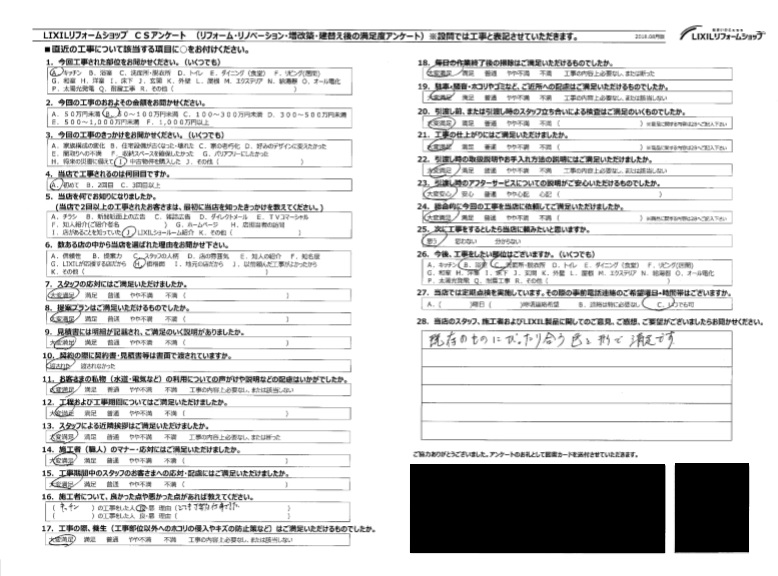 LIXILリフォームショップ CSアンケート (リフォーム・リノベーション・増改築・建替え後の満足度アンケート) ※設問では工事と表記させていただきます。
LIXILリフォームショップ
■直近の工事について該当する項目に○をお付けください。
1. 今回工事された部位をお聞かせください。(いくつでも)
A. キッチン B. 浴室 C. 洗面所・脱衣所 D. トイレ E. ダイニング(食堂) F. リビング(居間)
G. 和室 H. 洋室 I. 床下 J. 玄関 K. 外壁 L. 屋根 M. エクステリア N. 給湯器 O. オール電化
P. 太陽光発電 Q. 耐震工事 R. その他 ( )
2. 今回の工事のおおよその金額をお聞かせください。
A. 50万円未満 B. 50~100万円未満 C. 100~300万円未満 D. 300~500万円未満
E. 500~1,000万円未満 F. 1,000万円以上
3. 今回の工事のきっかけをお聞かせください。(いくつでも)
A. 家族構成の変化 B. 住宅設備が古くなった・壊れた C. 家の老朽化 D. 好みのデザインに変えたかった
E. 間取りへの不満 F. 収納スペースを確保したかった G. バリアフリーにしたかった
H. 将来の災害に備えて I. 中古物件を購入した J. その他 ( )
4. 当店で工事されるのは何回目ですか。
A. 初めて B. 2回目 C. 3回目以上
5. 当店を何でお知りになりましたか。
(当店で2回以上の工事されたお客さまは、最初に当店を知ったきっかけを教えてください。)
A. チラシ B. 新聞紙面上の広告 C. 雑誌広告 D. ダイレクトメール E. TVコマーシャル
F. 知人紹介(ご紹介者名 ) G. ホームページ H. 店頭看板の訪問
I. 店があることを知っていた J. LIXILショールーム紹介 K. その他 ( )
6. 数ある店の中から当店を選ばれた理由をお聞かせ下さい。
A. 信頼性 B. 提案力 C. スタッフの人柄 D. 店の雰囲気 E. 知人の紹介 F. 知名度
G. LIXILが応援する店だから H. 価格面 I. 地元の店だから J. 以前頼んだ工事がよかったから
K. その他 ( )
7. スタッフの応対にはご満足いただけましたか。
大変満足 満足 普通 やや不満 不満 ( )
8. 提案プランはご満足いただけるものでしたか。
大変満足 満足 普通 やや不満 不満 ( )
9. 見積書には明細が記載され、ご満足のいく説明がありましたか。
大変満足 満足 普通 やや不満 不満 ( )
10. 契約の際に契約書・見積書等は書面で渡されていますか。
渡された 渡されなかった
11. お客さまの私物 (水道・電気など) の利用についての声がけや説明などの配慮はいかがでしたか。
大変満足 満足 普通 やや不満 不満 工事の内容上必要なし、または該当しない
12. 工程および工事期間についてはご満足いただけましたか。
大変満足 満足 普通 やや不満 不満 ( )
13. スタッフによる近隣挨拶はご満足いただけましたか。
大変満足 満足 普通 やや不満 不満 工事の内容上必要なし、または断った
14. 施工者 (職人) のマナー・応対にはご満足いただけましたか。
大変満足 満足 普通 やや不満 不満 ( )
15. 工事期間中のスタッフのお客さまへの応対・配慮にはご満足いただけましたか。
大変満足 満足 普通 やや不満 不満 ( )
16. 施工者について、良かった点や悪かった点があれば教えてください。
( キッチン ) の工事をした人 良・悪 理由 (
( ) の工事をした人 良・悪 理由 ( )
17. 工事の際、養生 (工事部位以外へのホコリの侵入やキズの防止策など) はご満足いただけるものでしたか。
大変満足 満足 普通 やや不満 不満 工事の内容上必要なし、または該当しない
18. 毎日の作業終了後の掃除はご満足いただけるものでしたか。
大変満足 満足 普通 やや不満 不満 工事の内容上必要なし、または断った
19. 駐車・騒音・ホコリやゴミなど、ご近所への配慮はご満足いただけるものでしたか。
大変満足 満足 普通 やや不満 不満 工事の内容上必要なし、または該当しない
20. 引渡し前、または引渡し時のスタッフ立ち会いによる検査はご満足のいくものでしたか。
大変満足 満足 普通 やや不満 不満 ( )
21. 工事の仕上がりにはご満足いただけましたか。
大変満足 満足 普通 やや不満 不満 ( )
22. 引渡し時の取扱説明やお手入れ方法の説明にはご満足いただけましたか。
大変満足 満足 普通 やや不満 不満 工事の内容上必要なし、または該当しない
23. 引渡し時のアフターサービスについての説明がご安心いただけるものでしたか。
大変安心 安心 普通 やや心配 心配 ( )
24. 総合的に今回の工事を当店に依頼してご満足いただけましたか。
大変満足 満足 普通 やや不満 不満 ( )
25. 次に工事をするとしたら当店に頼みたいと思いますか。
思う 思わない 分からない
26. 今後、工事をしたい部位はございますか。(いくつでも)
A. キッチン B. 浴室 C. 洗面所・脱衣所 D. トイレ E. ダイニング(食堂) F. リビング(居間)
G. 和室 H. 洋室 I. 床下 J. 玄関 K. 外壁 L. 屋根 M. エクステリア N. 給湯器 O. オール電化
P. 太陽光発電 Q. 耐震工事 R. その他 ( )
27. 当店では定期点検を実施しています。その際の事前電話連絡のご希望曜日・時間帯はございますか。
A. ( )曜日 ( )時頃連絡希望 B. 訪問は特に必要なし C. いつでも可
28. 当店のスタッフ、施工者およびLIXIL製品に関してのご意見、ご感想、ご要望がございましたらお聞かせください。
既存のものにぴったり合う色と形で満足です
ご協力ありがとうございました。アンケートのお礼として図書カードを送付させていただきます。